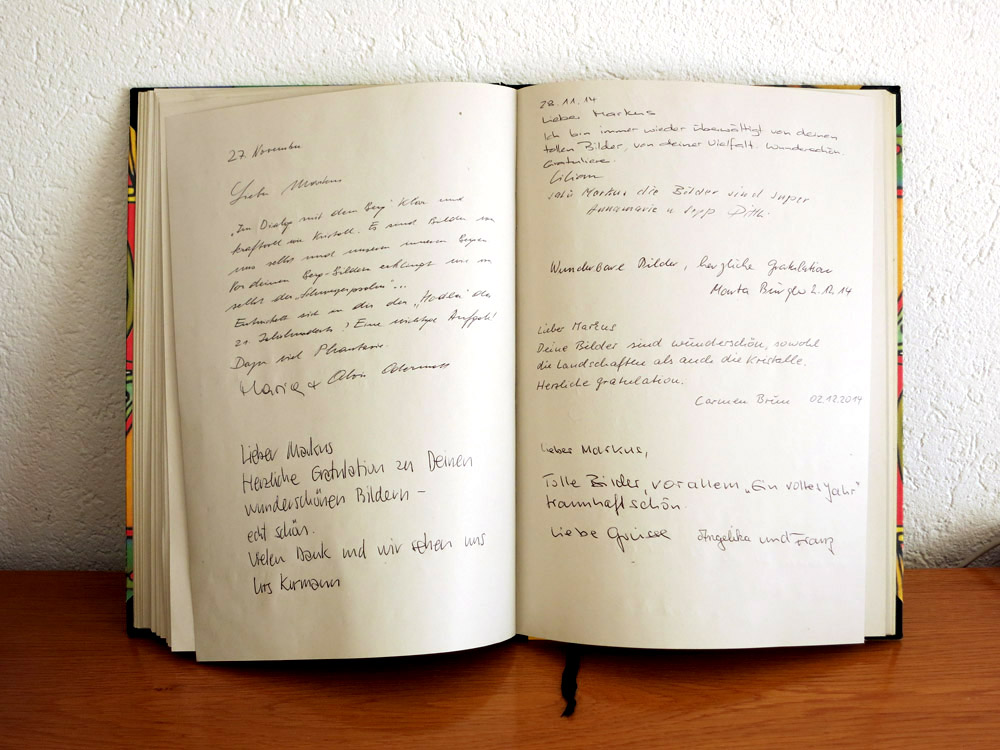 27. November
Liebe Markus
"Im Dialog mit dem Berg" Klar und
kraftvoll wie Kristall. Es sind Bilder von
uns selbst und unseren inneren Bergen
Vor deinen Berg-Bildern erklingt uns in
selbst der
sich in die den "Hodler" des
21 Jahrhunderts? Eine wichtige Aufgabe!
Dazu viel Phantasie.
Maria + Alois
Lieber Markus
Herzliche Gratulation zu Deinen
wunderschönen Bildern –
echt schön.
Vielen Dank und wir sehen uns
Urs Kurmann
28.11.14
Lieber Markus
Ich bin immer wieder überwältigt von deinen
tollen Bilder, von deiner Vielfalt. Wunderschön
Gratuliere.
Lilian
Markus die Bilder sind super
Annamarie u Sepp
Wunderbare Bilder, herzliche Gratulation
2.12.14
Lieber Markus
Deine Bilder sind wunderschön, sowohl
die Landschaften als auch die Kristalle.
Herzliche Gratulation.
Carmen 02.12.2014
Lieber Markus,
Tolle Bilder, vor allem "Ein volles Jahr"
traumhaft schön.
Liebe Grüsse Angelika und Franz